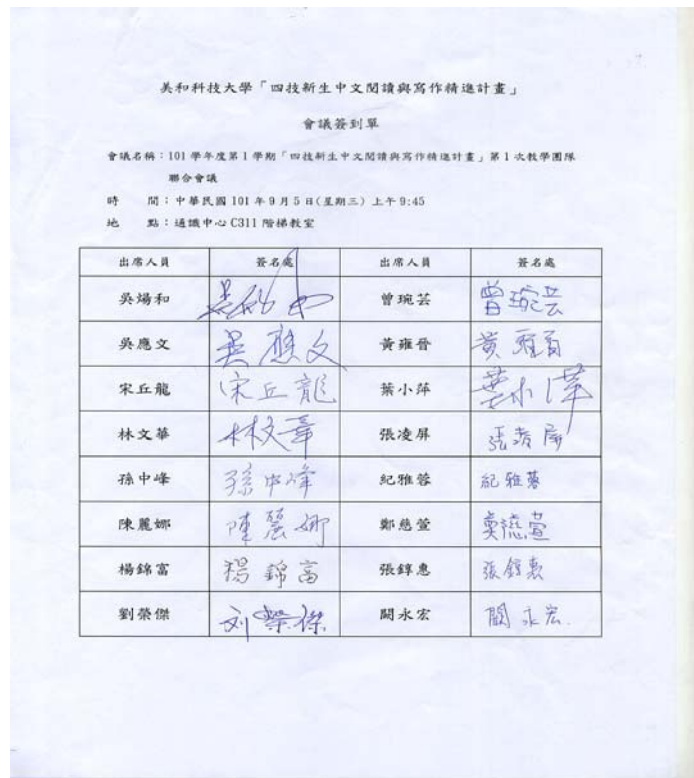 美和科技大學「四技新生中文閱讀與寫作精進計畫」
會議簽到單
會議名稱：101 學年度第 1 學期「四技新生中文閱讀與寫作精進計畫」第 1 次教學團隊
聯合會議
時 間：中華民國 101 年 9 月 5 日(星期三) 上午 9:45
地 點：通識中心 C311 階梯教室
出席人員 簽名處 出席人員 簽名處
吳煬和 吳煬和 曾琬芸 曾琬芸
吳應文 吳應文 黃雍晉 黃雍晉
宋丘龍 宋丘龍 葉小萍 葉小萍
林文華 林文華 張凌屏 張凌屏
孫中峰 孫中峰 紀雅蓉 紀雅蓉
陳麗娜 陳麗娜 鄭慈萱 鄭慈萱
楊錦富 楊錦富 張錞惠 張錞惠
劉榮傑 刘榮傑 闕永宏 闕永宏